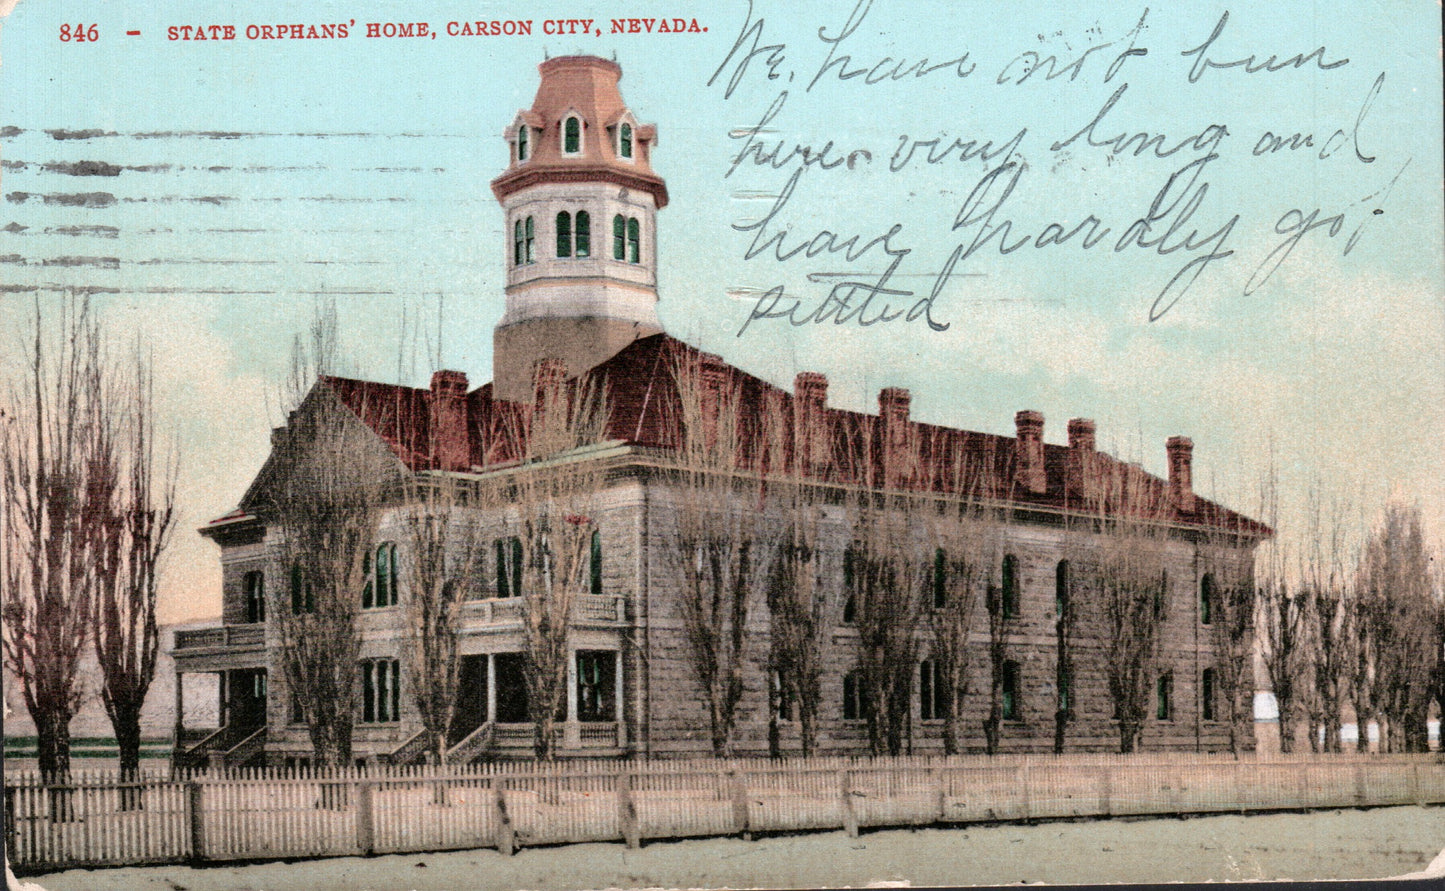 846 - STATE ORPHANS' HOME, CARSON CITY, NEVADA.
We have not bun
here very long and
have hardly got
settled